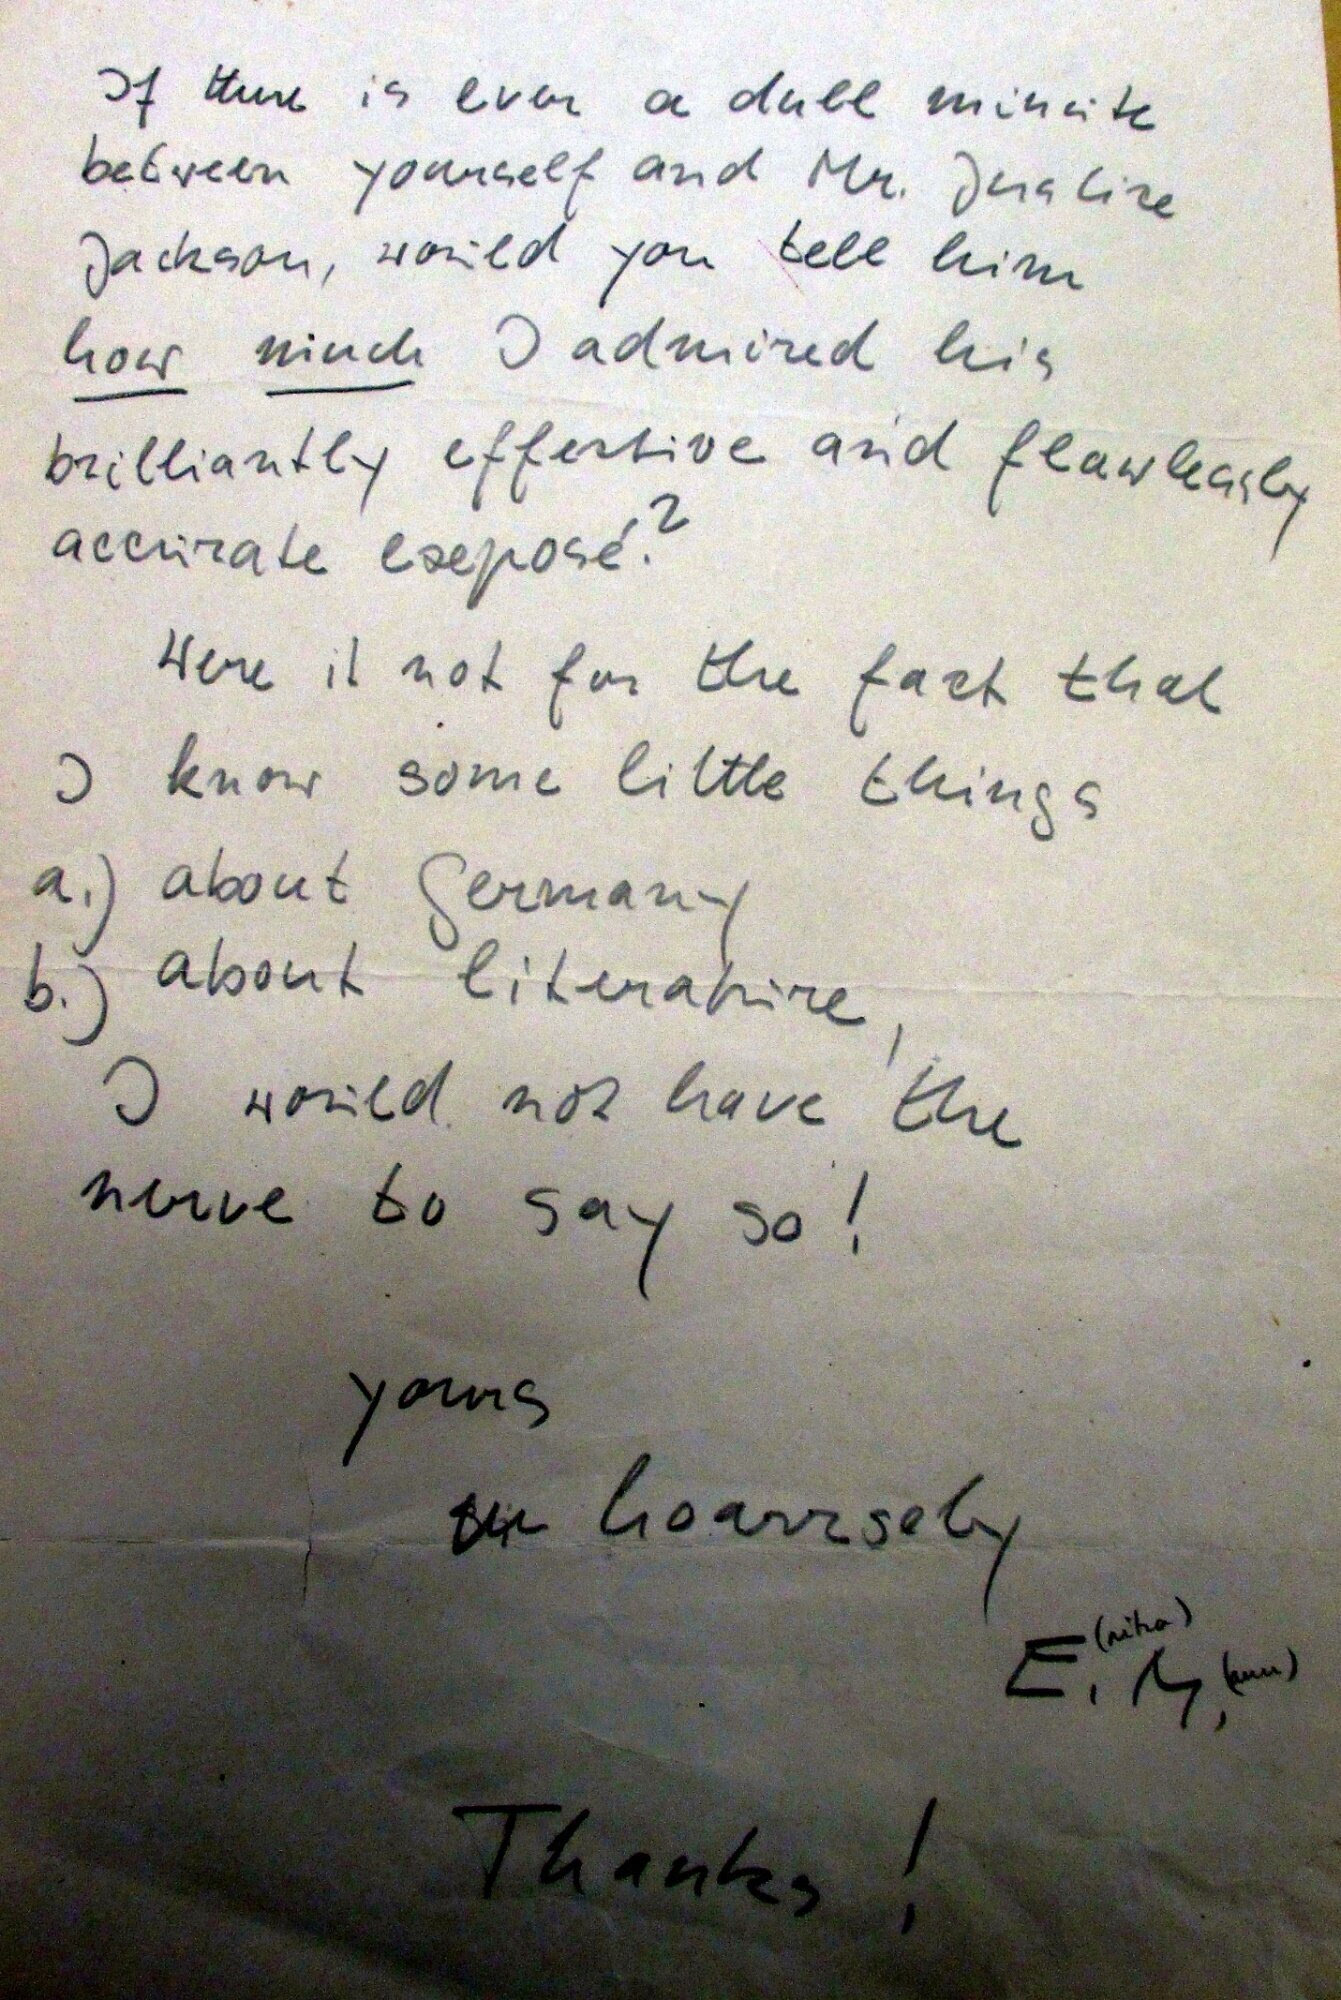 If there is ever a dull minute
between yourself and Mr. Justice
Jackson, would you tell him
how much I admired his
brilliantly effective and flawlessly
accurate exposé?
Were it not for the fact that
I know some little things
a.) about Germany
b.) about literature,
I would not have the
nerve to say so!
yours
hoarsely
E. (rika)
M. (ann)
Thanks!